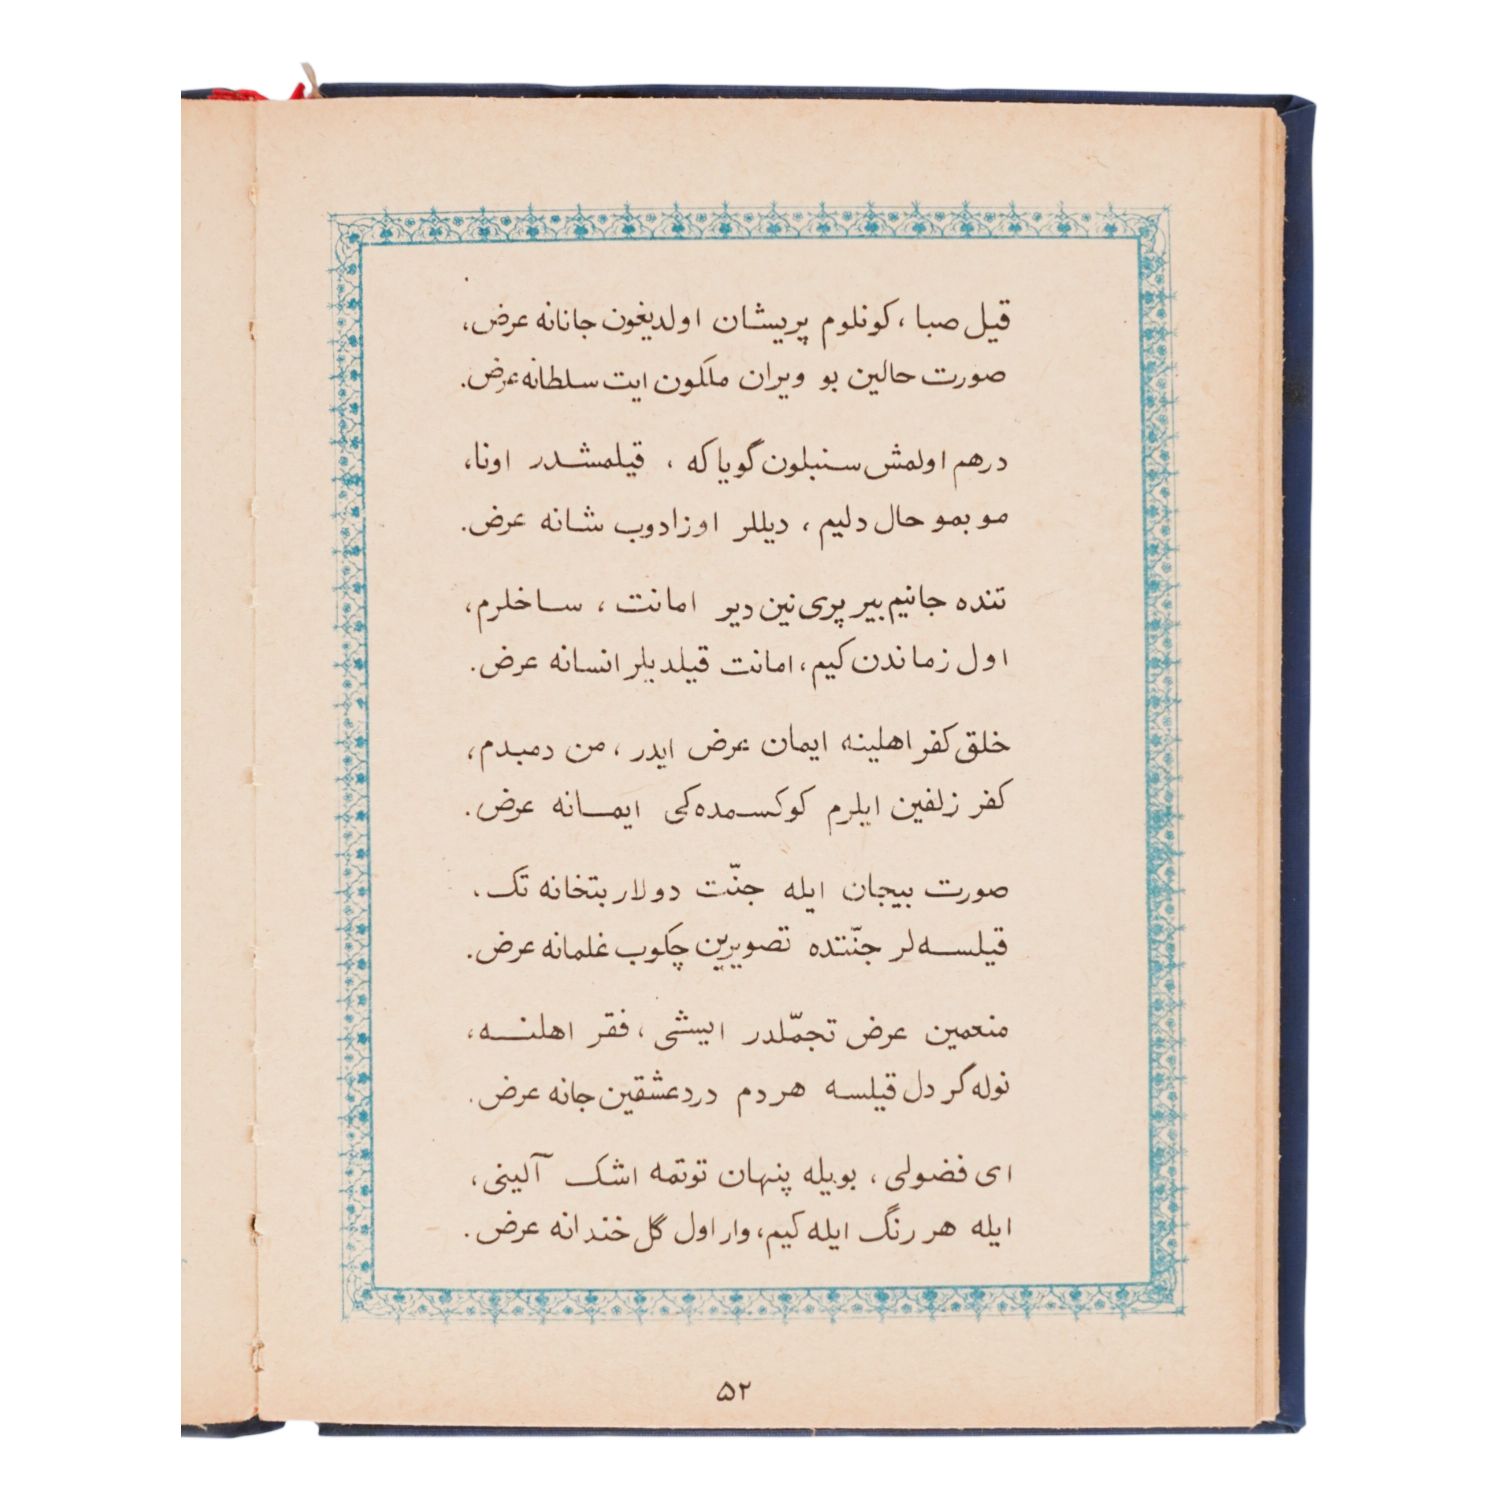 قیل صبا ، کونلوم پریشان اولدیغون جانانه عرض،
صورت حالین بو ویران ملکون ایت سلطانه عرض.
درهم اولمش سنبلون گویا که ، قیلمشدر اونا،
مو بمو حال دلیم ، دیللر اوزادوب شانه عرض.
تنده جانیم بیر پری نین دیر امانت ، ساخلرم،
اول زماندن کیم، امانت قیلدیلر انسانه عرض.
خلق کفر اهلینه ایمان عرض ایدر ، من دمبدم،
کفر زلفین ایلرم کوکسمده کی ایمانه عرض.
صورت بیجان ایله جنّت دولار بتخانه تک،
قیلسه لر جنّتده تصویرین چکوب غلمانه عرض.
منعمین عرض تجمّلدر ایشی ، فقر اهلنه،
نوله گر دل قیلسه هر دم درد عشقین جانه عرض.
ای فضولی ، بویله پنهان توتمه اشک آلینی،
ایله هر رنگ ایله کیم، وار اول گل خندانه عرض.
۵۲